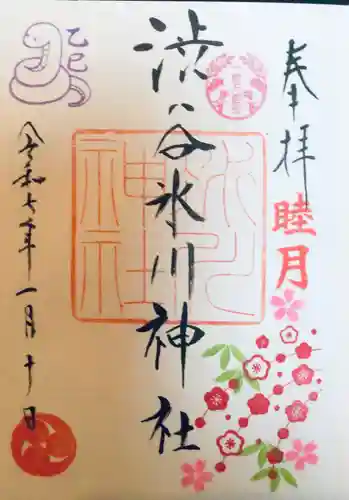 奉拝
睦月
渋谷氷川神社
氷川神社
乙巳
令和七年一月十日